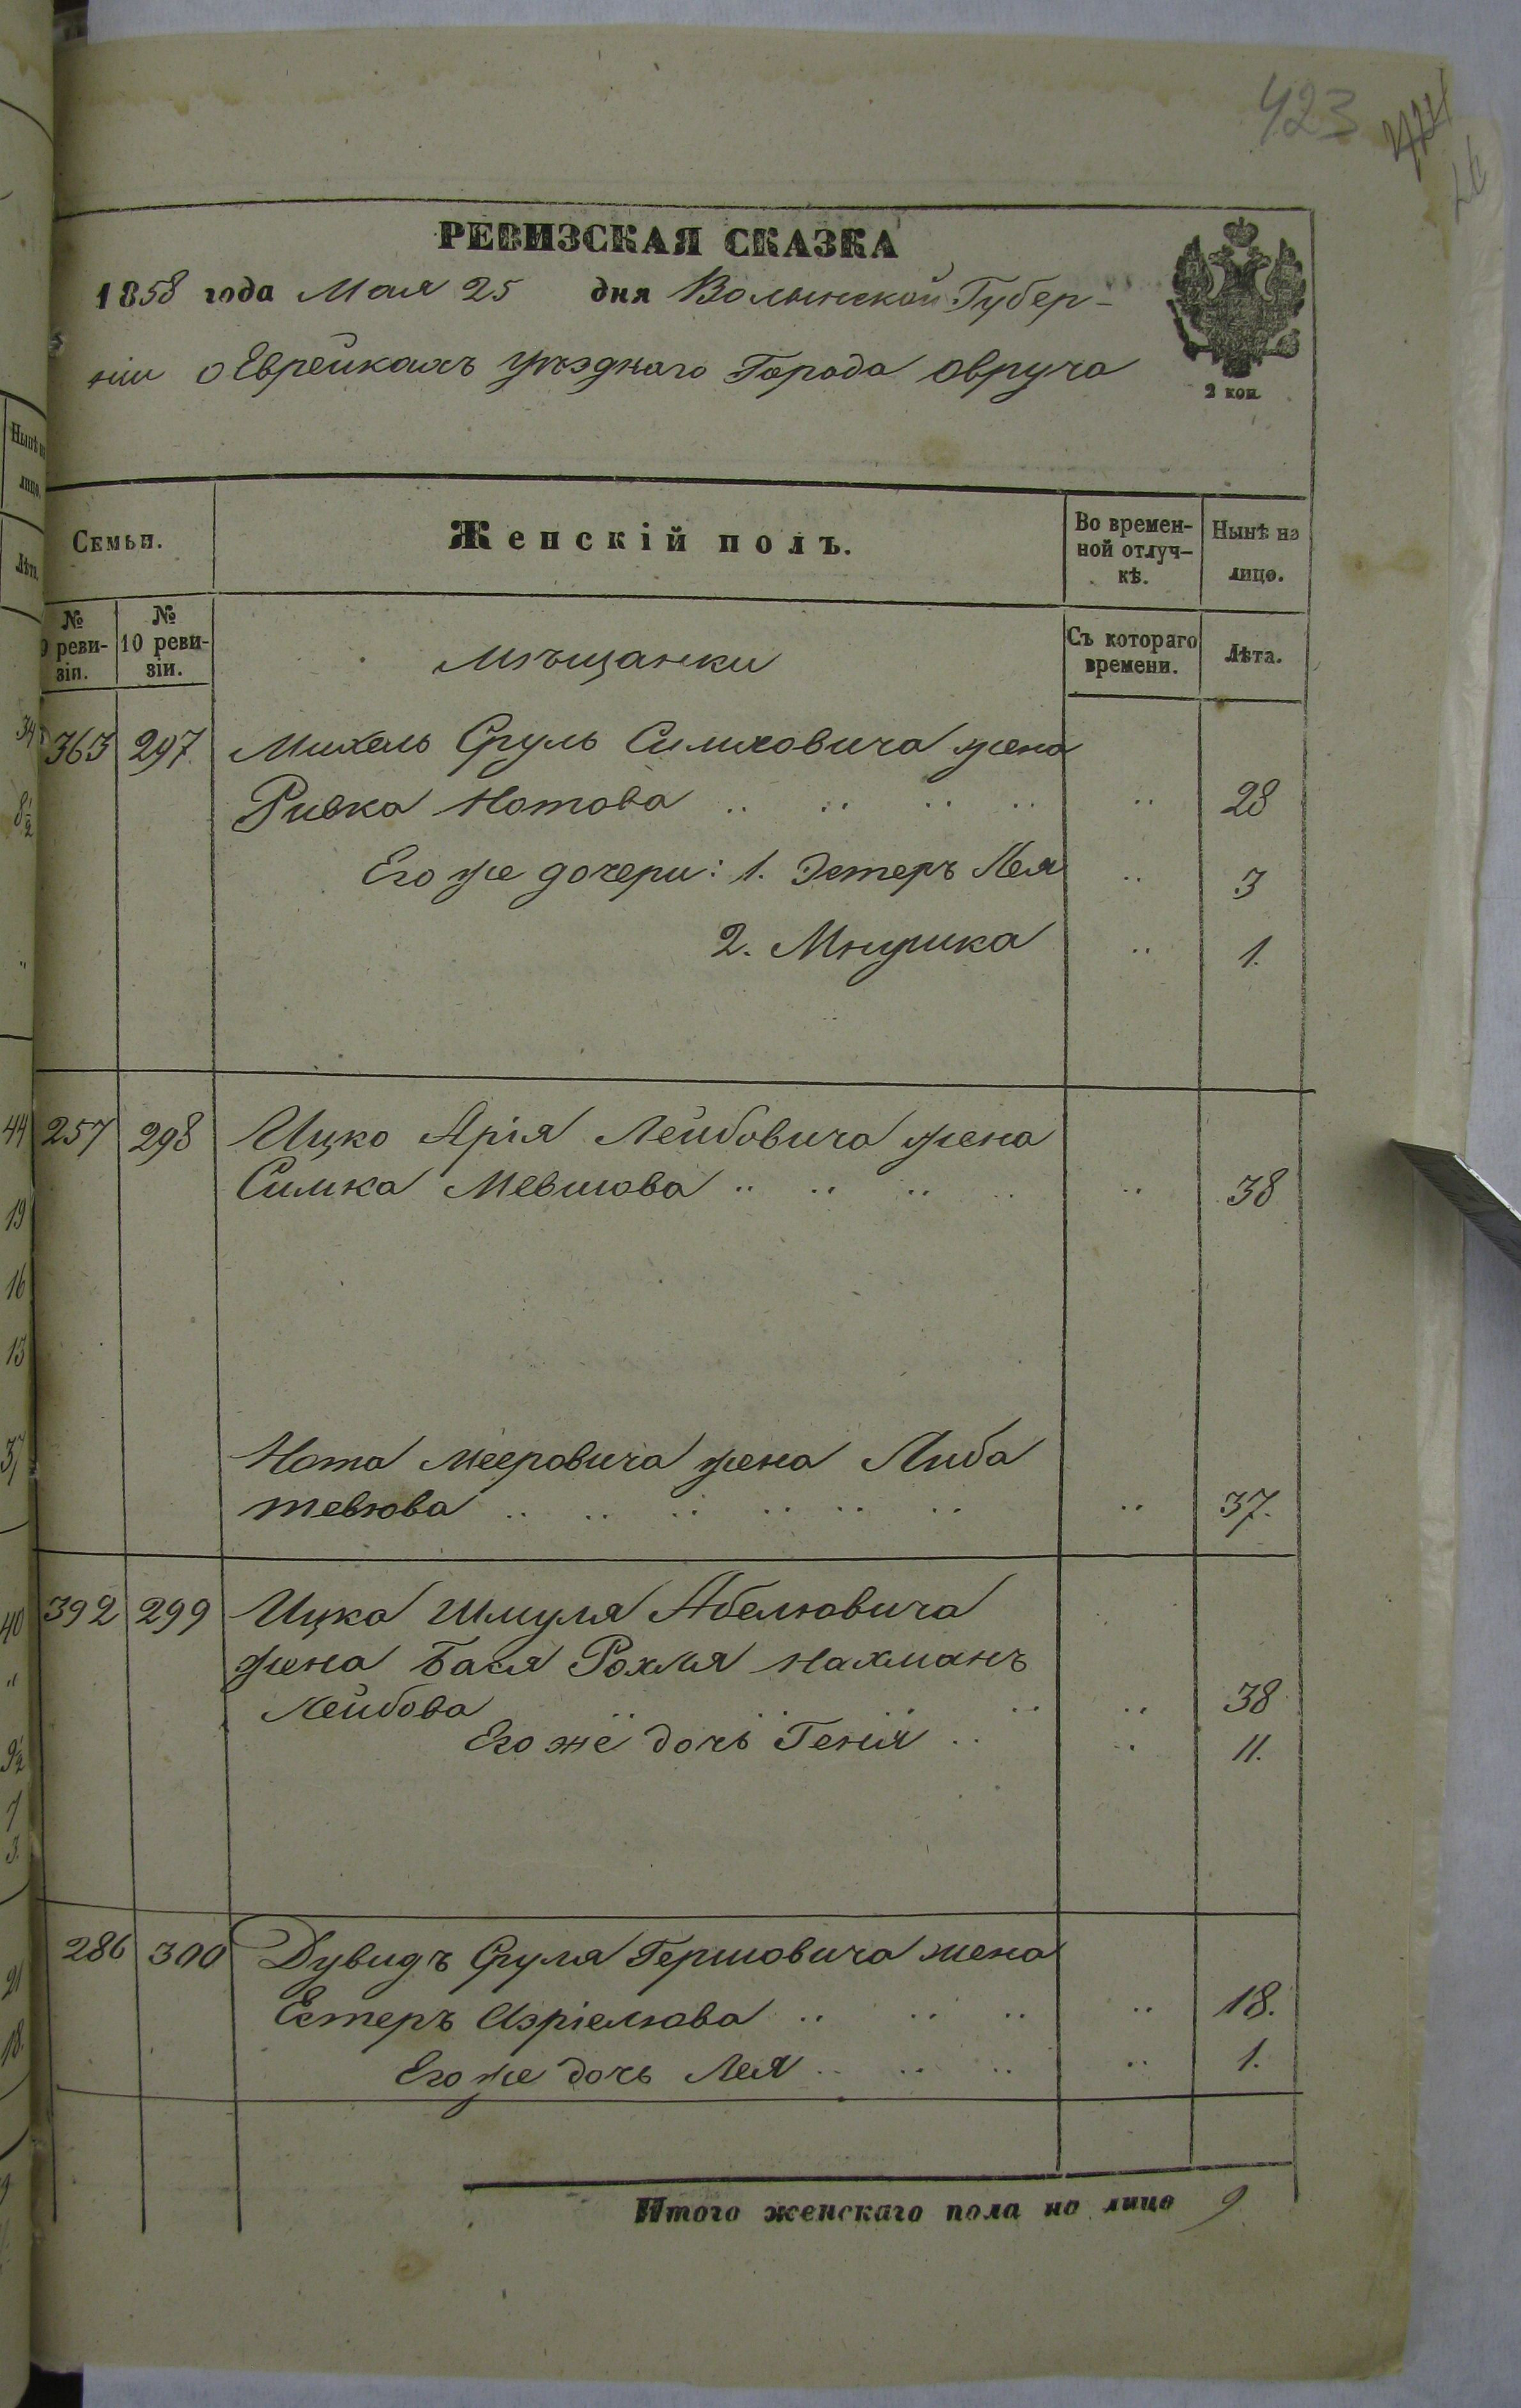 423
РЕВИЗСКАЯ СКАЗКА
1858 года Мая 25 дня Волынской Губер-
ніи о Еврейкахъ уѣзднаго Города Овруча
2 коп.
Семьи.
Женскій полъ.
Во времен-
ной отлуч-
кѣ.
Нынѣ на
лицо.
№
9 реви-
зіи.
№
10 реви-
зіи.
Мѣщанки
Съ котораго
времени.
Лѣта.
363 297 Михель Сруль Симховича жена
Ривка Нотова .. .. .. .. .. 28
Его же дочери: 1. Эстеръ Лея .. 3
2. Мнушка .. 1.
257 298 Ицко Арія Лейбовича жена
Симка Мевшова .. .. .. .. .. 38
Нота Мееровича жена Либа
тевюва .. .. .. .. .. .. .. 37.
392 299 Ицка Шмуля Абелювича
жена Бася Рохля Нахманъ
Лейбова .. .. .. .. 38
Его же дочь Геня .. .. 11.
286 300 Дувидъ Сруля Гершовича жена
Естеръ Азріелюва .. .. .. .. 18.
Его же дочь Лея .. .. .. .. 1.
Итого женскаго пола на лицо 9